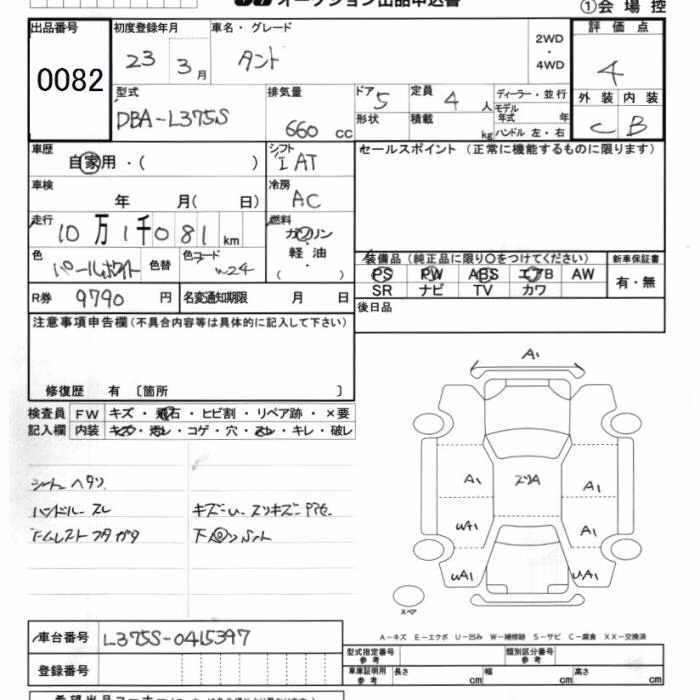 オークション出品申込書
①会場控
出品番号 初度登録年月 車名・グレード 評価点
0082 23 3月 タント 2WD・4WD 4
型式 排気量 ドア 5 定員 4人 ディーラー・並行 外装 内装
DBA-L375S 660 cc 形状 積載 kg モデル年式 年 C B
ハンドル 左・右
車歴 シフト セールスポイント (正常に機能するものに限ります)
自家用・( ) I AT
車検 冷房
年 月( 日) AC
走行 燃料
10万1千081km ガソリン
軽油
( )
色 パールホワイト 色替 色コード W24
装備品(純正品に限り○をつけてください) 新車保証書
PS PW ABS エアB AW 有・無
SR ナビ TV カワ
R券 9790円 名変通知期限 月 日
後日品
注意事項申告欄(不具合内容等は具体的に記入して下さい)
修復歴 有 〔箇所 〕
検査員 FW キズ・飛石・ヒビ割・リペア跡・×要
記入欄 内装 キズ・汚レ・コゲ・穴・スレ・キレ・破レ
シートヘタリ
ハンドルスレ
A1
A1 ズリA A1
UA1 A1
UA1 UA1
スペア
A-キズ E-エクボ U-凹み W-補修跡 S-サビ C-腐食 XX-交換済
車台番号 L375S-0415397
登録番号
型式指定番号 参考 類別区分番号 参考
車庫証明用 参考 長さ cm 幅 cm 高さ cm